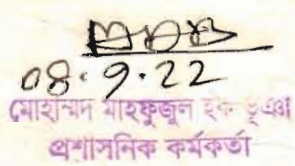 ০৪.৯.২২
মোহাম্মদ মাহফুজুল হক ভূঞা
প্রশাসনিক কর্মকর্তা